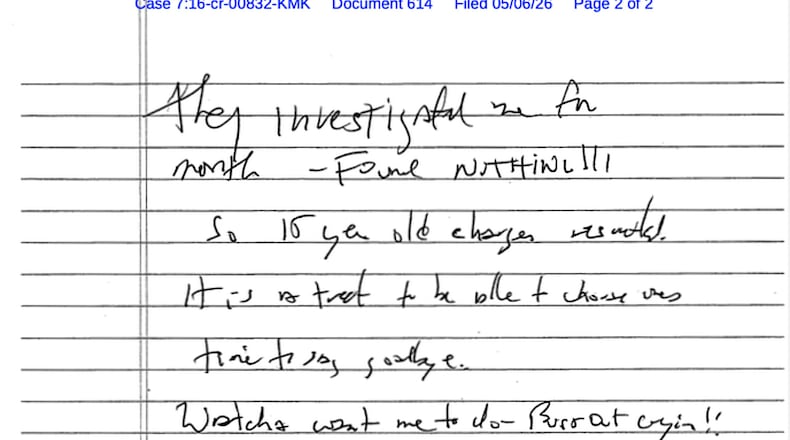 Case 7:16-cr-00832-KMK Document 614 Filed 05/06/26 Page 2 of 2
They investigated me for
month - Found NOTHING!!!
So 15 year old charges
It is a treat to be able to choose
time to say goodbye.
Watcha want me to do - Burst out cryin!!